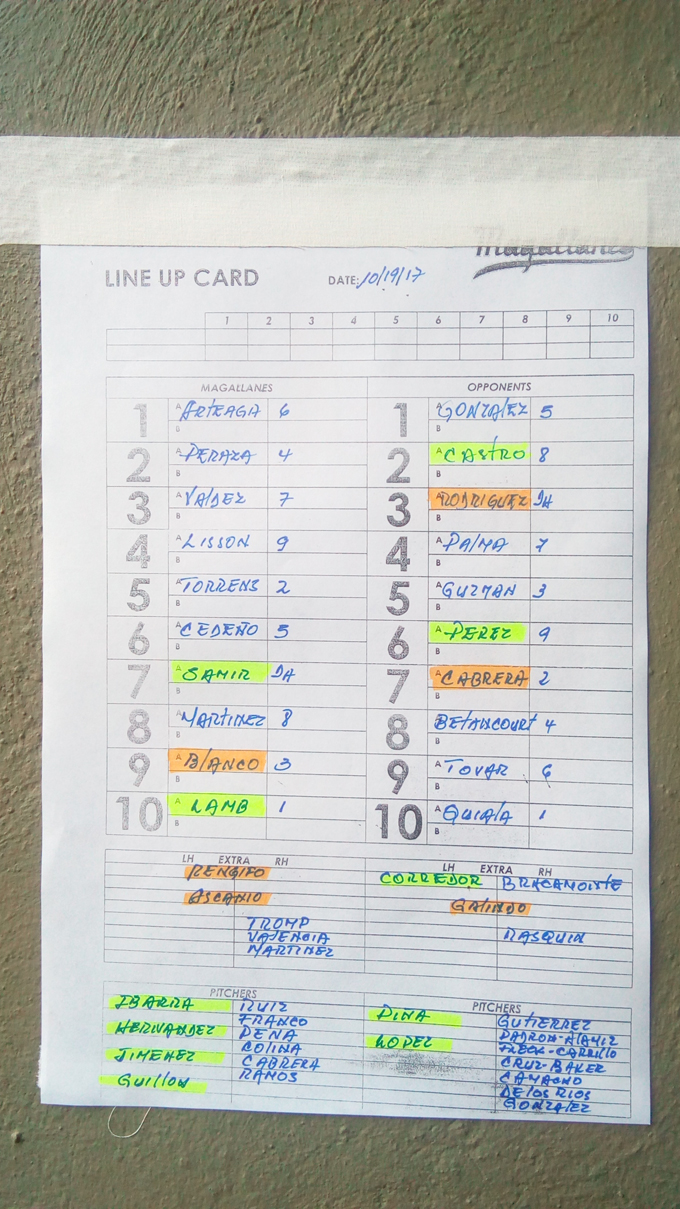 Magallanes
LINE UP CARD DATE: 10/19/17
1 2 3 4 5 6 7 8 9 10
MAGALLANES OPPONENTS
1 A ARTEAGA 6 1 GONZALEZ 5
B B
2 A PERAZA 4 2 A CASTRO 8
B B
3 A VALDEZ 7 3 A RODRIGUEZ DH
B B
4 A LISSON 9 4 A PALMA 7
B B
5 A TORRENS 2 5 A GUZMAN 3
B B
6 A CEDEÑO 5 6 A PEREZ 9
B B
7 A SAMIR DH 7 A CABRERA 2
B B
8 A MARTINEZ 8 8 BETANCOURT 4
B B
9 A BLANCO 3 9 A TOVAR 6
B B
10 A LAMB 1 10 A QUIALA 1
B B
LH EXTRA RH LH EXTRA RH
RENGIFO CORREDOR BRACAMONTE
ASCANIO GALINDO
TROMP
VALENCIA RASQUIN
MARTINEZ
PITCHERS PITCHERS
IBARRA RUIZ PIÑA GUTIERREZ
HERNANDEZ FRANCO LOPEZ
PEÑA
JIMENEZ COLINA CRUZ-BAKER
CABRERA CAMACHO
GUILLON RAMOS DE LOS RIOS
GONZALEZ